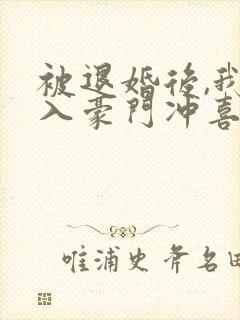 被退婚後,我
入豪門冲喜
唯浦史斧名田